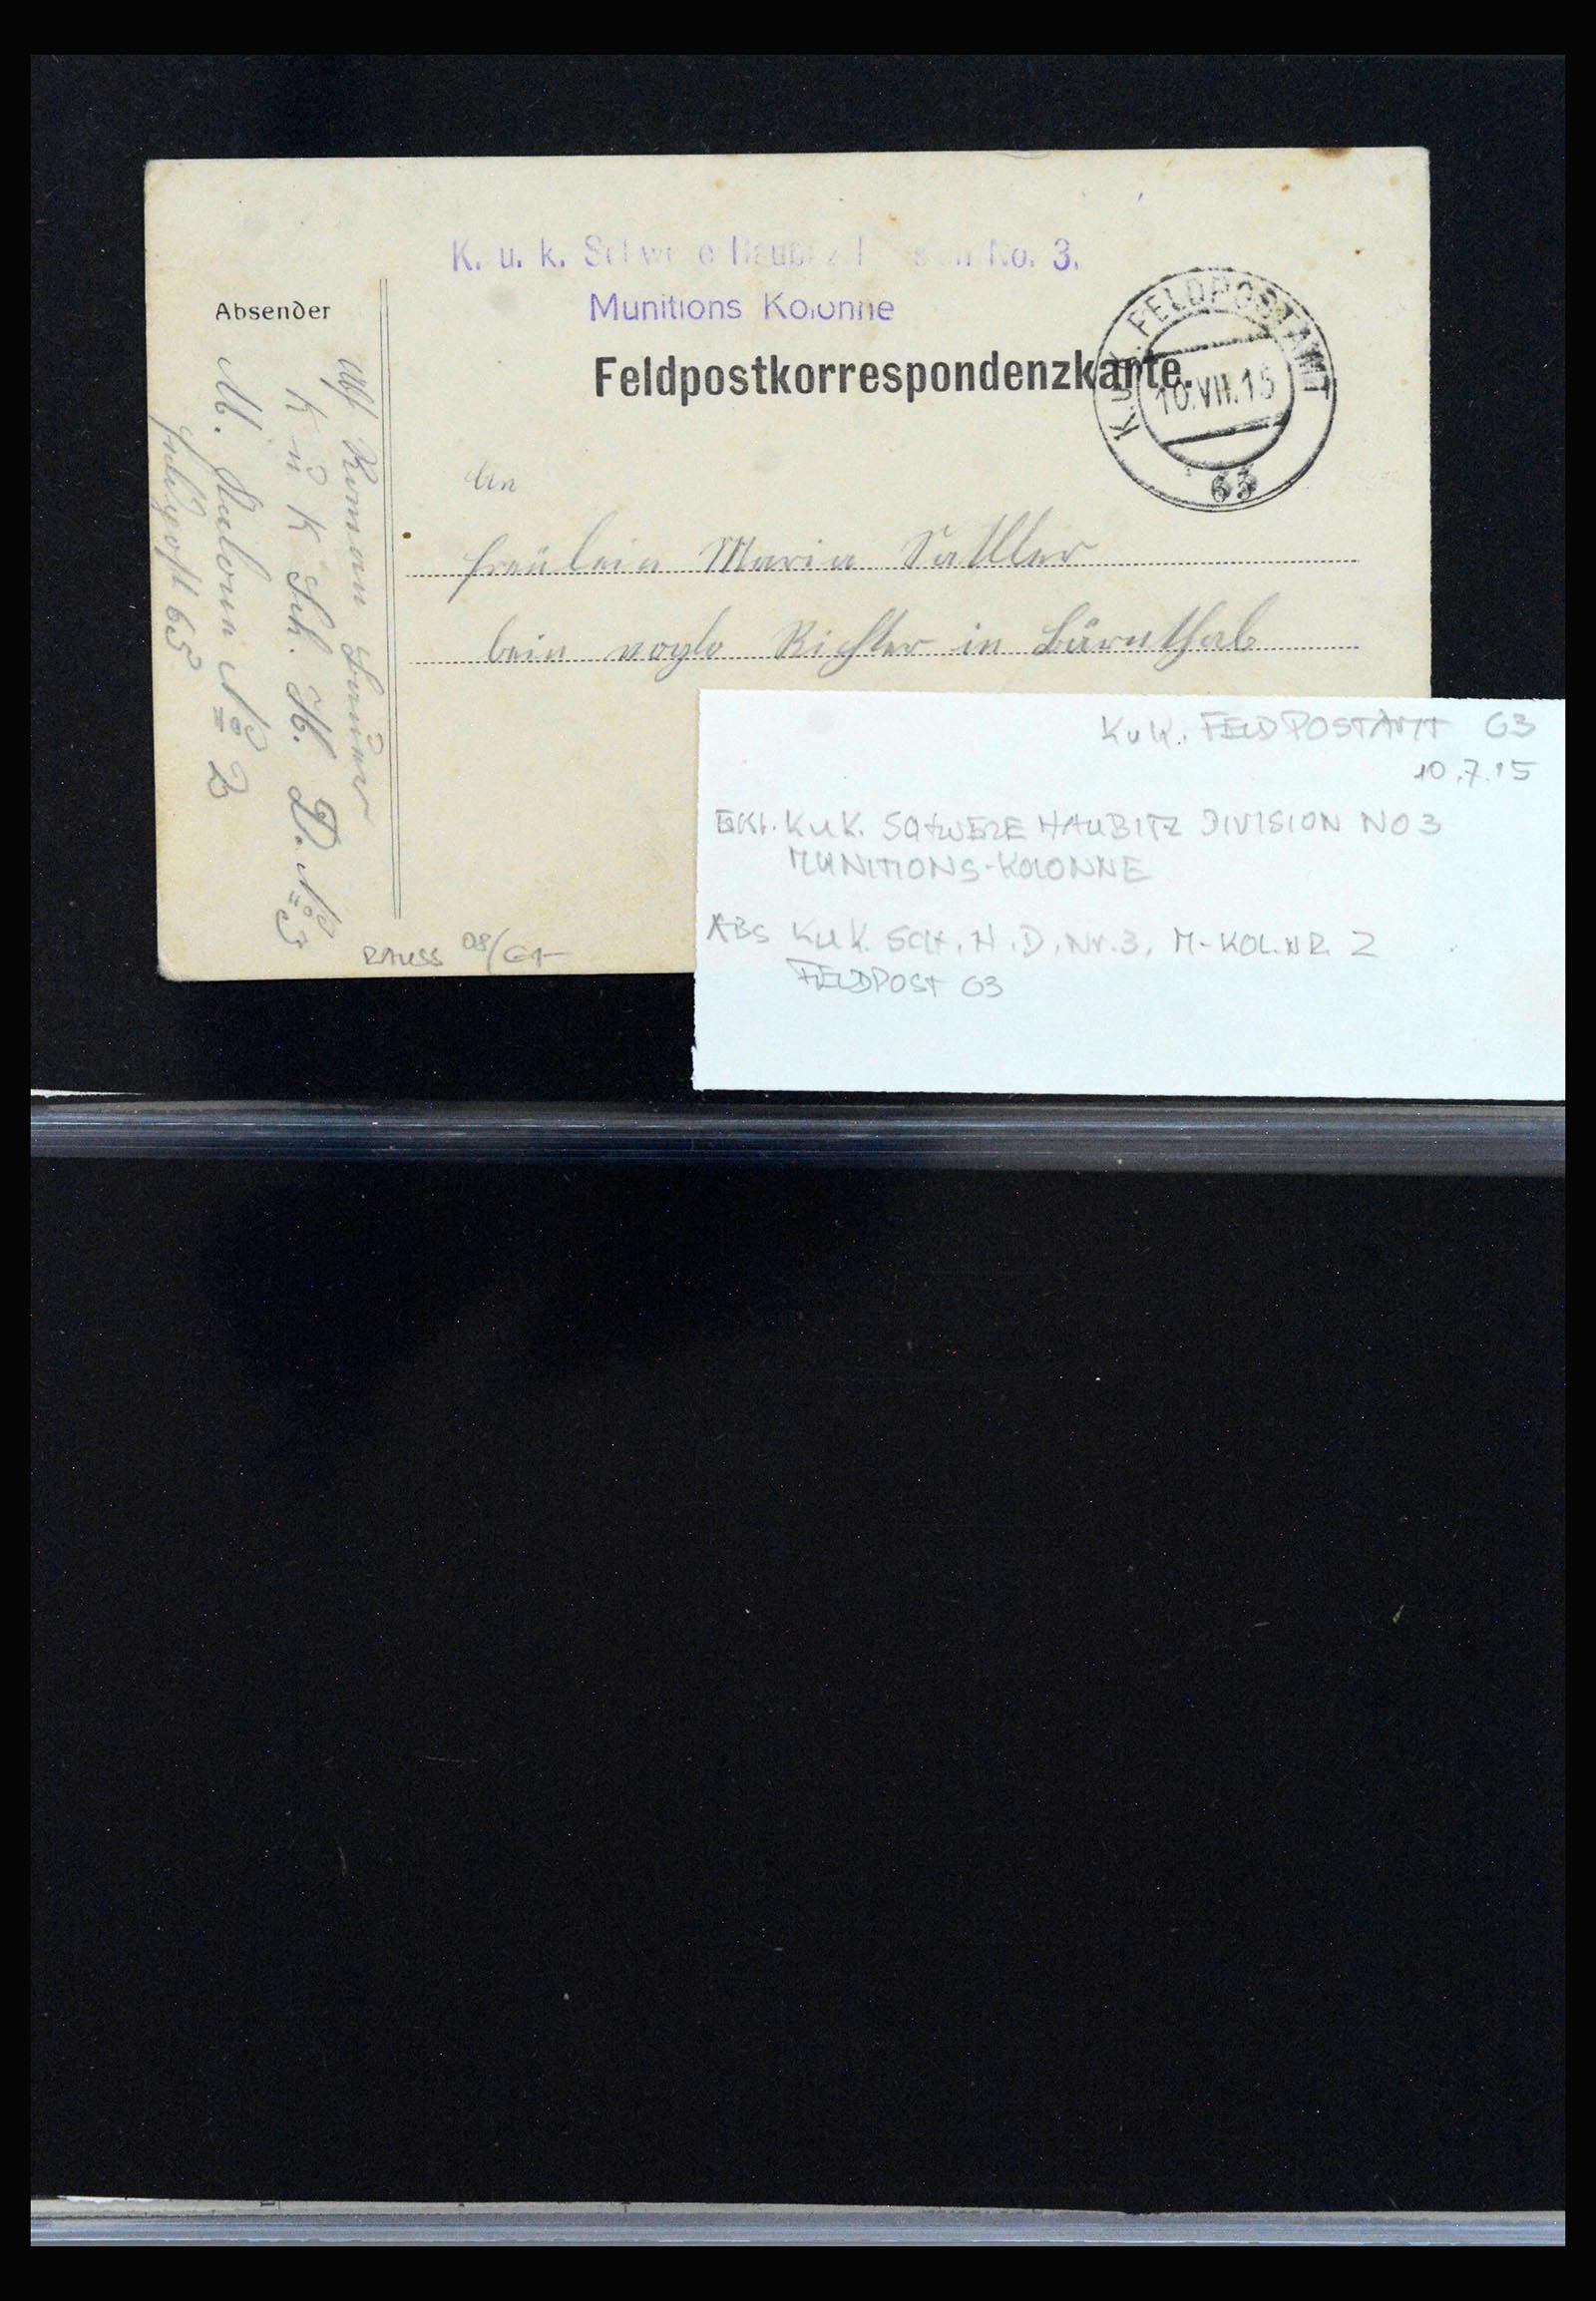 K. u. k. No. 3.
Munitions Kolonne
Absender
Feldpostkorrespondenzkarte.
K.u.K. FELDPOSTAMT
10.VII.15
63
An
Fräulein Maria Sattler
beim Richter in Bärnthal
Abs Roman
K u K Sch. H. D. No 3
M. Kolonne No 2
Feldpost 63
RAUSS 08/
KuK. FELDPOSTAMT 63
10.7.15
KuK. SCHWERE HAUBITZ DIVISION NO 3
MUNITIONS-KOLONNE
ABS KuK. SCH. H. D. Nr. 3. M-KOL.NR. 2
FELDPOST 63